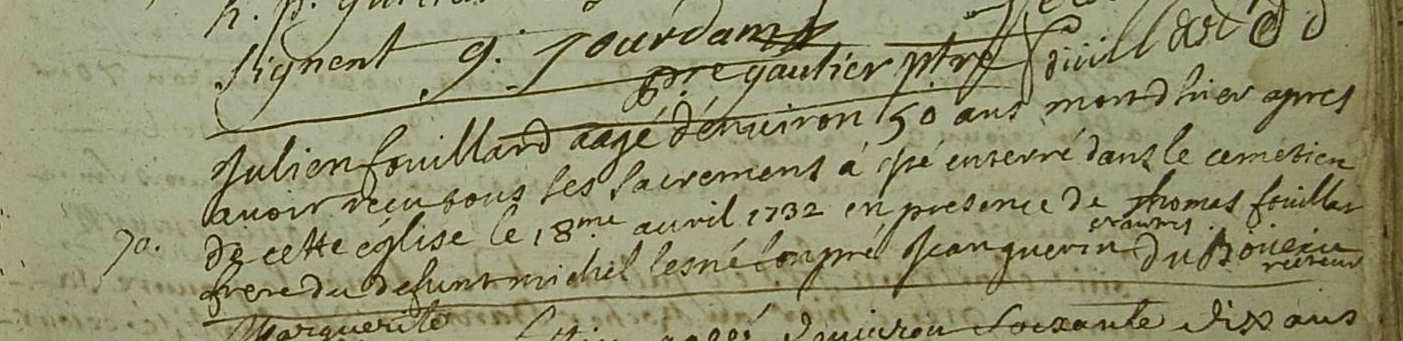 signent g. jourdam
pre gautier ptre
julien fouillard aagé d'enuiron 50 ans mort d'hier apres
auoir reçu tous ses sacrements á eté enterré dans le cemetiere
70. de cette église le 18me auril 1732 en presence de thomas fouillar
frere du defunt michel lesné Jean guerin et autres du
recteur
Marguerite aagée d'enuiron soixante dix ans